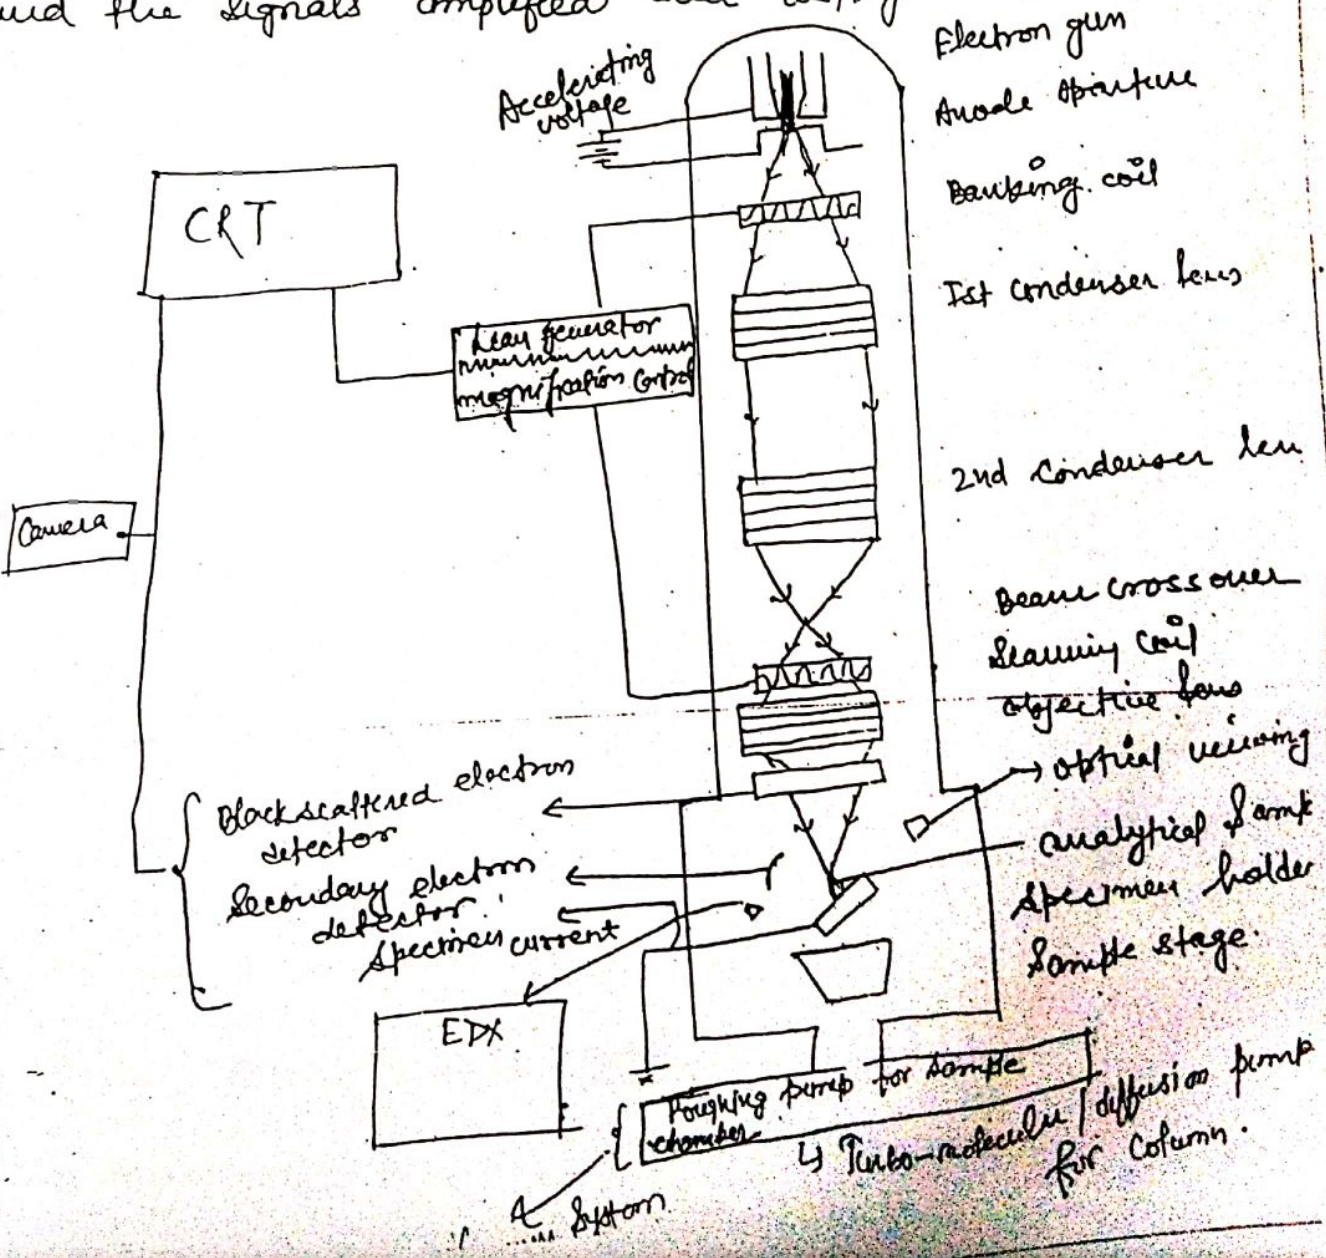 and the signals amplified
Accelerating
voltage
Electron gun
Anode Aparture
coil
CRT
Ist Condenser lens
Scan generator
magnification Control
2nd Condenser len
Camera
Beam crossover
Scanning Coil
objective lens
optical veiwing
Black scattered electron
detector
analytical Samp
Secondary electron
detector
Specimen holder
Specimen current
Sample stage.
EDX
Roughing pump for Sample
chamber
↳ Turbo-molecular / diffusion pump
for Column.
System